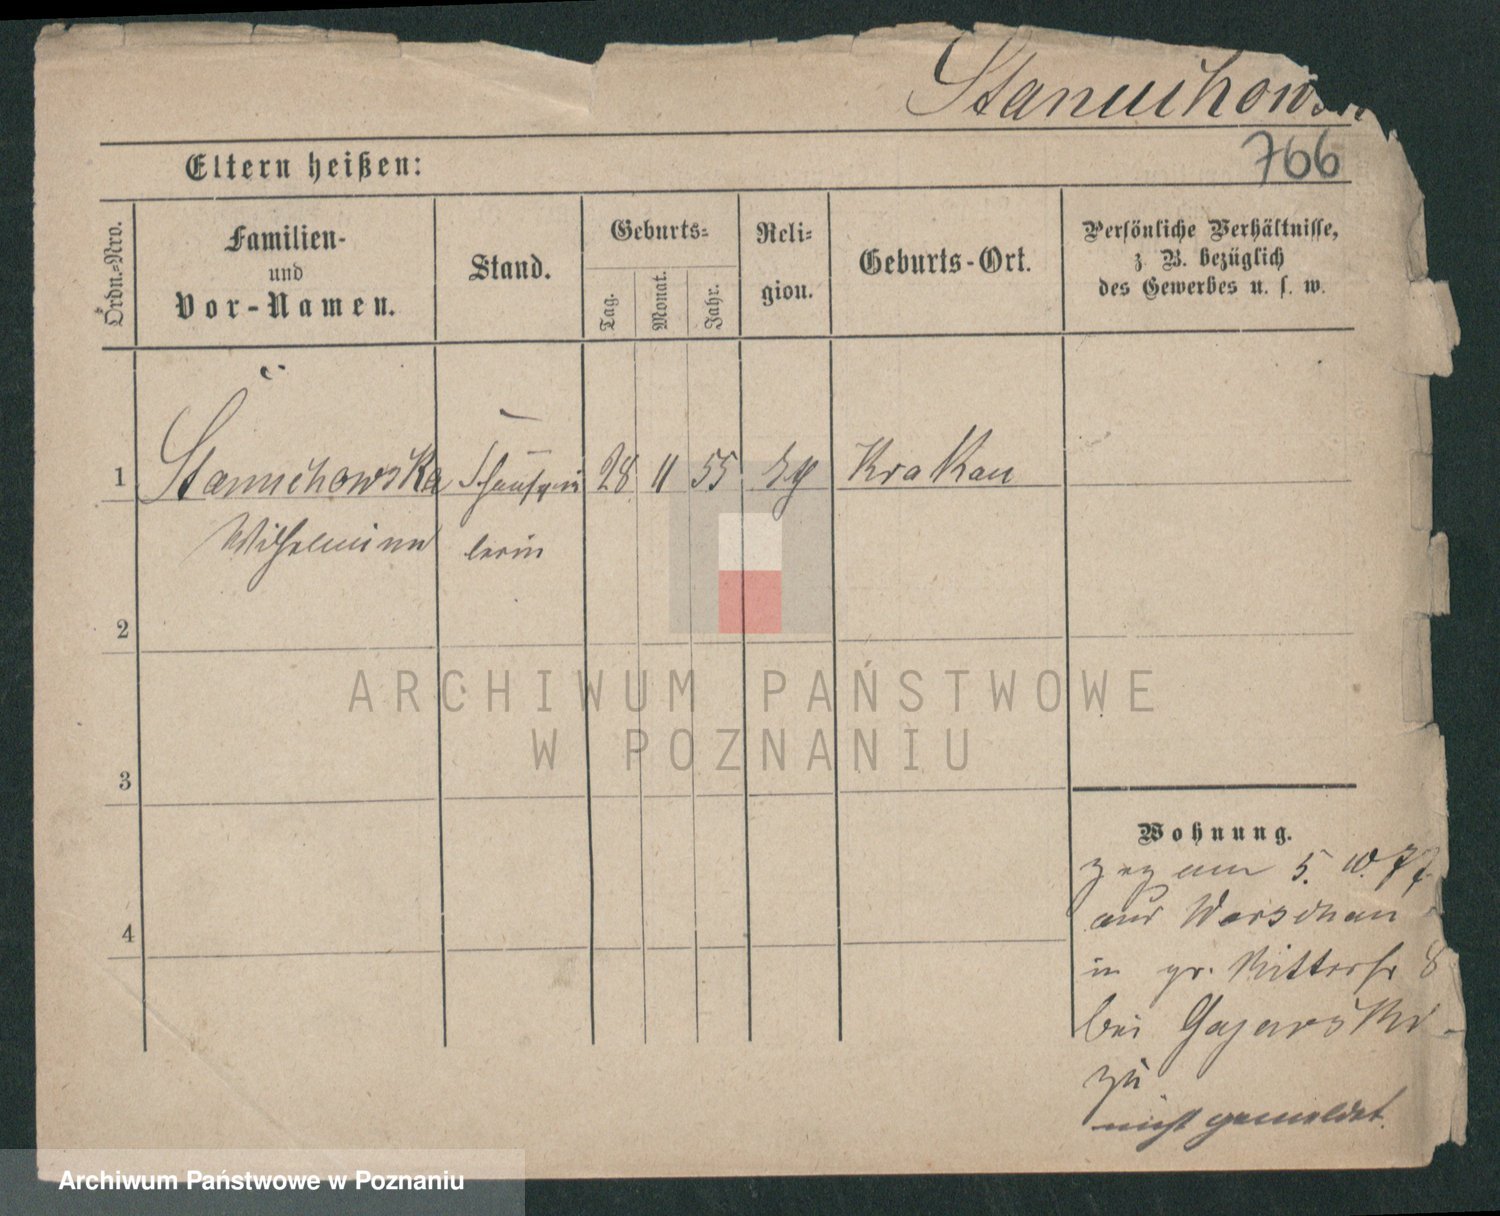 Stanuchowsk
766
Eltern heißen:
Ordn.=Nro.
Familien-
und
Vor-Namen.
Stand.
Geburts=
Tag.
Monat.
Jahr.
Reli=
gion.
Geburts-Ort.
Persönliche Verhältnisse,
z. B. bezüglich
des Gewerbes u. s. w.
1 Stanuchowska Schauspie 28 11 55 Krakau
Wilhelmine lerin
2
3
4
Wohnung.
zog am 5. 10. 77
aus Warschau
in gr. Ritterstr 8
bei Gajewski
zu
nicht gemeldet.
ARCHIWUM PAŃSTWOWE
W POZNANIU
Archiwum Państwowe w Poznaniu